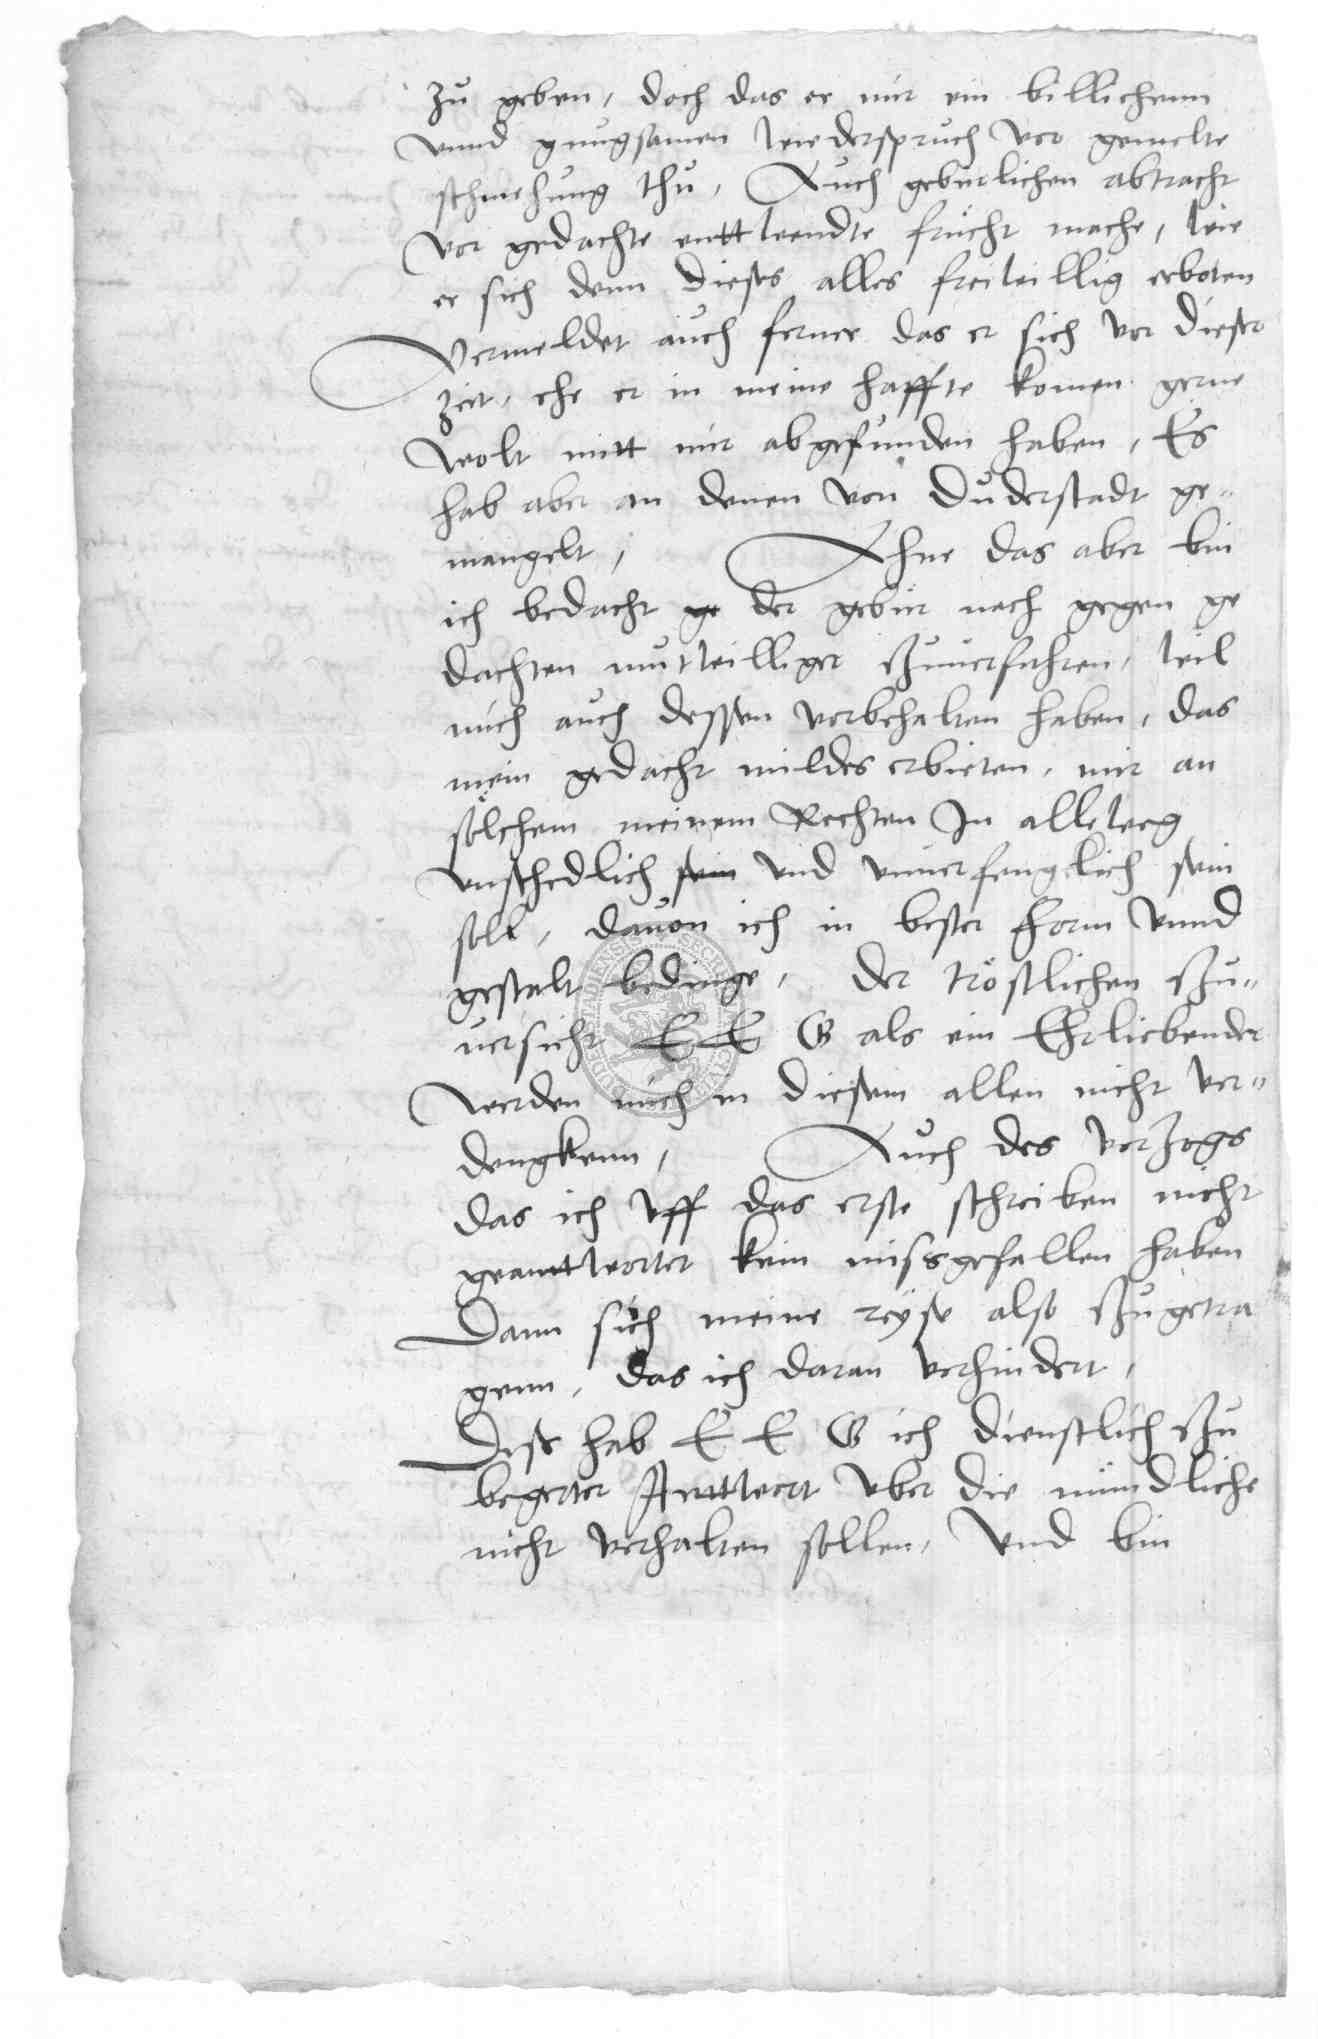 zu geben, doch das er mir ein billichenn
vnnd gnugsamen wiederspruch vor gemelte
schmehung thu, Auch geburlichen abtracht
vor gedachte enttwendte frücht mache, wie
er sich denn dieses alles freiwillig erboten
Vermeldet auch ferner das er sich vor dieser
zeit, ehe er in meine haffte komen gerne
wolt mitt mir abgefunden haben, Es
hab aber an denen von Duderstadt ge-
mangelt, Ahne das aber bin
ich bedacht ge der gebür nach gegen ge
dachten mutwilliger zuuerfahren, wil
mich auch dessen vorbehalten haben, das
mein gedacht mildes erbieten, mir an
sölchem meinem Rechten In alleweg
vnschedlich sein vnd vnuerfenglich sein
soll, dauon ich in bester form vnnd
gestalt bedinge, der tröstlichen zu-
uersicht E E G als ein Ehrliebender
werden mich in diesem allen nicht ver-
dengkenn, Auch des verzogs
das ich vff das erste schreiben nicht
geanttwortet kein missgefallen haben
Dann sich meine reyse also zugetra
genn, das ich daran verhindert,
Dess hab E E G ich dienstlich zu
begerter Anttwort vber die mündliche
nicht verhalten sollen, Vnd bin
RECH
DIENSIS